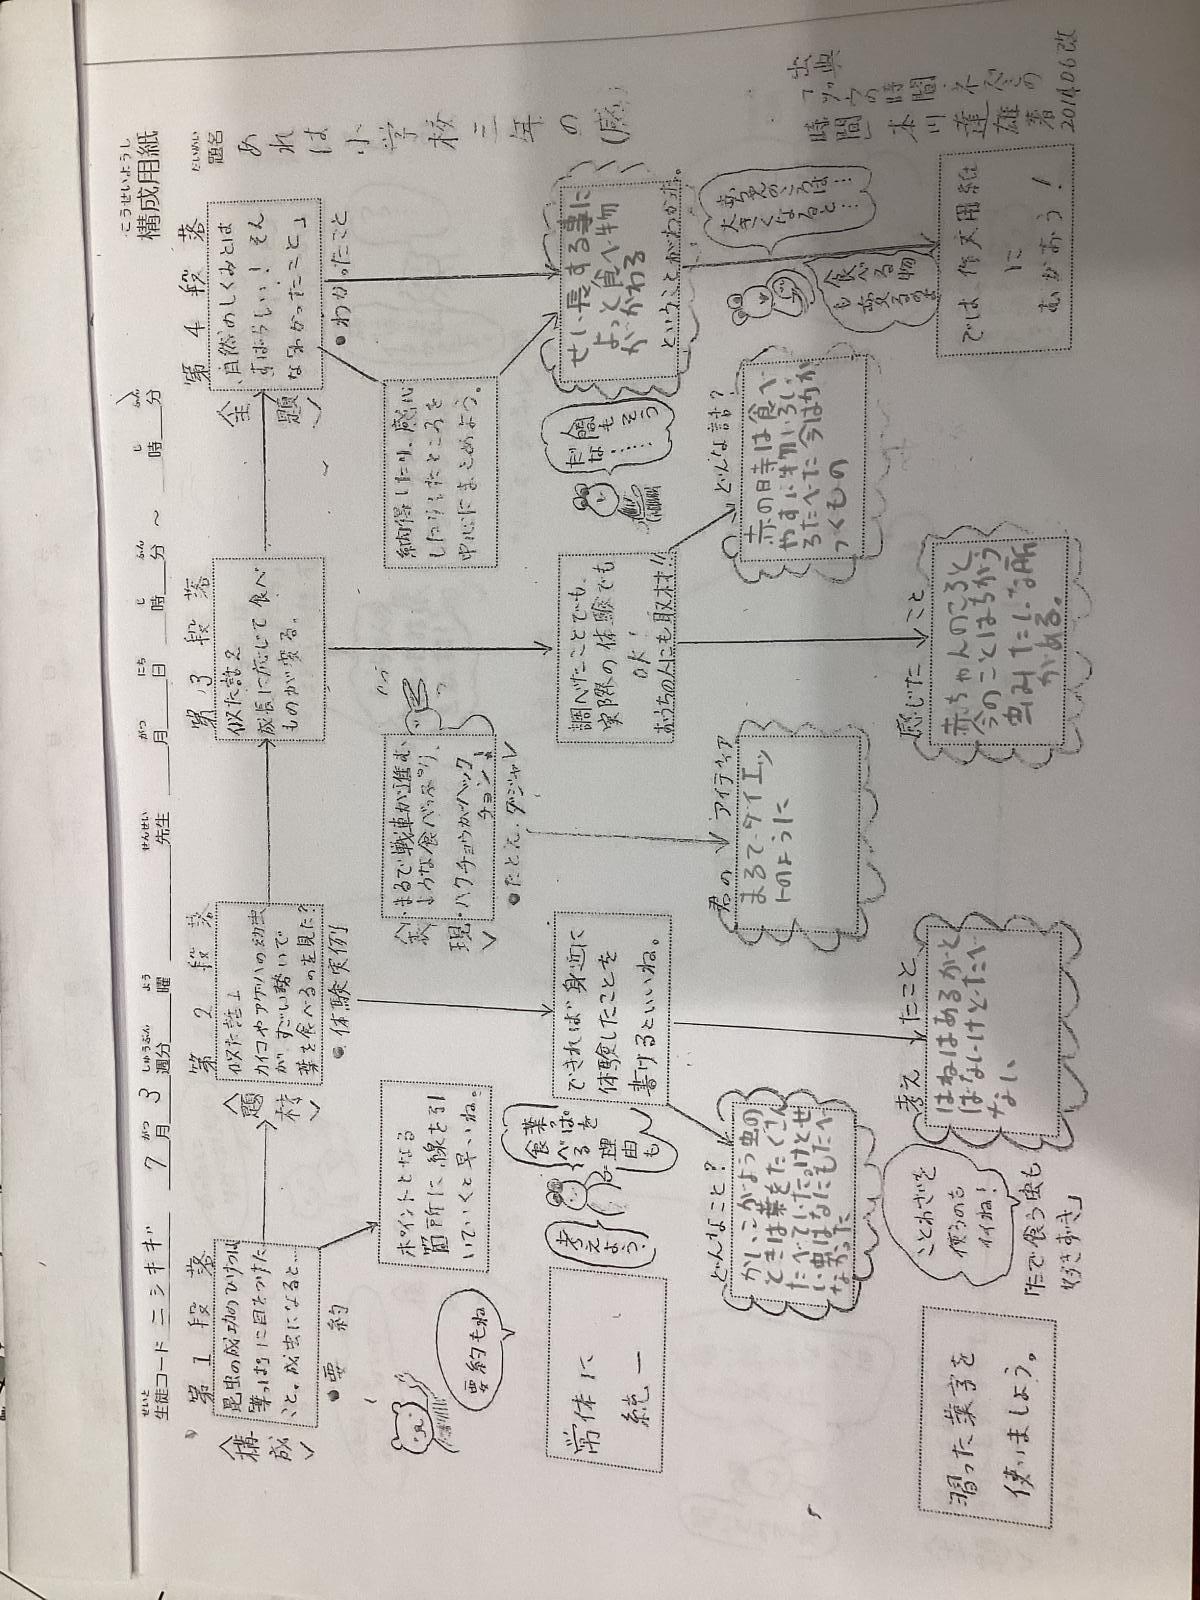 こうせいようし
構成用紙
だいめい
題名
あれは小学校三年の(感)
出典
「ゾウの時間ネズミの時間」本川達雄著
2014.06改
せいと
生徒コード ニシキギ 7月 3週分 曜 先生 月 日 時 分 〜 時 分
第1段落
第2段落
第3段落
第4段落
〈構成〉
昆虫の成功のひけつは
「葉っぱ」に目をつけた
こと。成虫になると…
●要約
〈題材〉
似た話1
カイコやアゲハの幼虫
が、すごい勢いで
葉を食べるのを見た?
●体験実例
似た話2
成長に応じて食べ
ものが変る。
〈主題〉
「自然のしくみとは
すばらしい!そん
なわかったこと」
●わかったこと
ポイントとなる
箇所に線を引
いていくと早いね。
要約もね
〈表現〉
・まるで戦車が進む
ような食べっぷり、
・ハクチョウがハックチョン!
●たとえ・ダジャレ
納得したり、感心
したりしたところを
中心にまとめよう。
常体に
統一
考えよう?
葉っぱを
食べる
理由も
できれば身近に
体験したことを
書けるといいね。
調べたことでも、
実際の体験でも
OK!
おうちの人にも取材!!
人間も
そうだな……
せい長する事に
よって食べ物
がかわる
ということがわかった。
どんなこと?
かいこがよう虫の
ときは葉をたくさん
たべていたけどせ
い虫はなにもたべ
なかった
君のアイディア
まるでダイエッ
トのように
どんな話?
赤の時は食べ
やすい物いろい
ろたべた今はわか
つくもの
赤ちゃんのころは…
大きくなると……
食べる物
も変るの
習った漢字を
使いましょう。
ことわざを
使うのも
イイね!
「たで食う虫も
好きずき」
考えたこと
はねはあるがと
はないけどたべ
ない、
感じたこと
赤ちゃんのころと
今のことはちがう
虫みたいな所
がある。
では、作文用紙
に
むかおう!